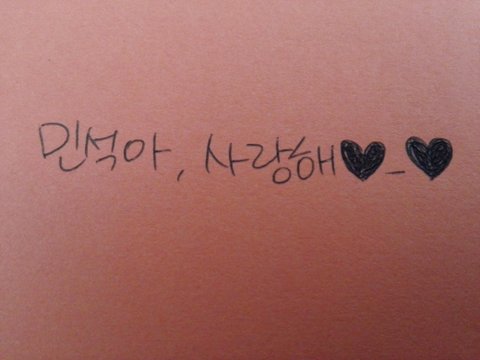 민석아, 사랑해♥_♥